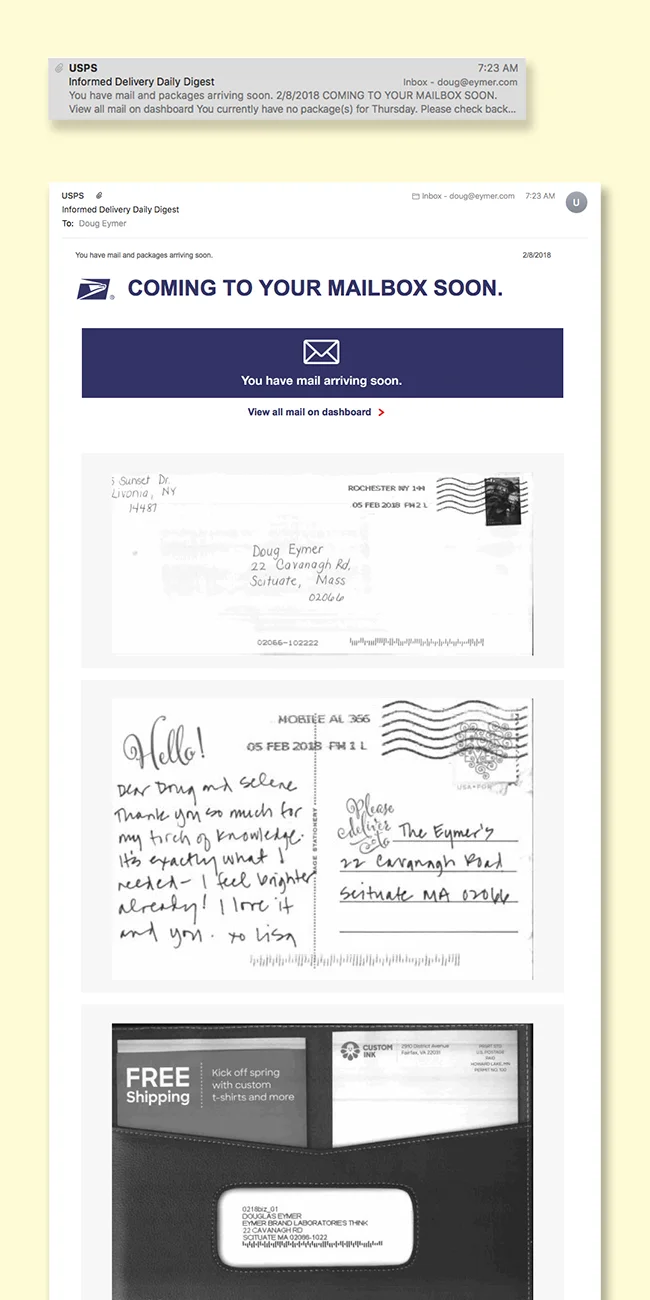 USPS
7:23 AM
Informed Delivery Daily Digest
Inbox - doug@eymer.com
You have mail and packages arriving soon. 2/8/2018 COMING TO YOUR MAILBOX SOON.
View all mail on dashboard You currently have no package(s) for Thursday. Please check back...
USPS
Inbox - doug@eymer.com 7:23 AM
U
Informed Delivery Daily Digest
To: Doug Eymer
You have mail and packages arriving soon.
2/8/2018
COMING TO YOUR MAILBOX SOON.
You have mail arriving soon.
View all mail on dashboard
Sunset Dr.
Livonia, NY
14487
ROCHESTER NY 144
05 FEB 2018 PM 2 L
Doug Eymer
22 Cavanagh Rd.
Scituate, Mass
02066
02066-102222
MOBILE AL 366
05 FEB 2018 PM 1 L
Hello!
Dear Doug and Selene
Thank you so much for
my torch of knowledge.
It's exactly what I
needed- I feel brighter
already! I love it
and you. xo Lisa
AGE STATIONERY
Please
deliver
to
The Eymer's
22 Cavanagh Road
Scituate MA 02066
FREE
Shipping
Kick off spring
with custom
t-shirts and more
CUSTOM
INK
2910 District Avenue
Fairfax, VA 22031
PRSRT STD
U.S. POSTAGE
PAID
HOWARD LAKE, MN
PERMIT NO. 100
0218biz_01
DOUGLAS EYMER
EYMER BRAND LABORATORIES THINK
22 CAVANAGH RD
SCITUATE MA 02066-1022